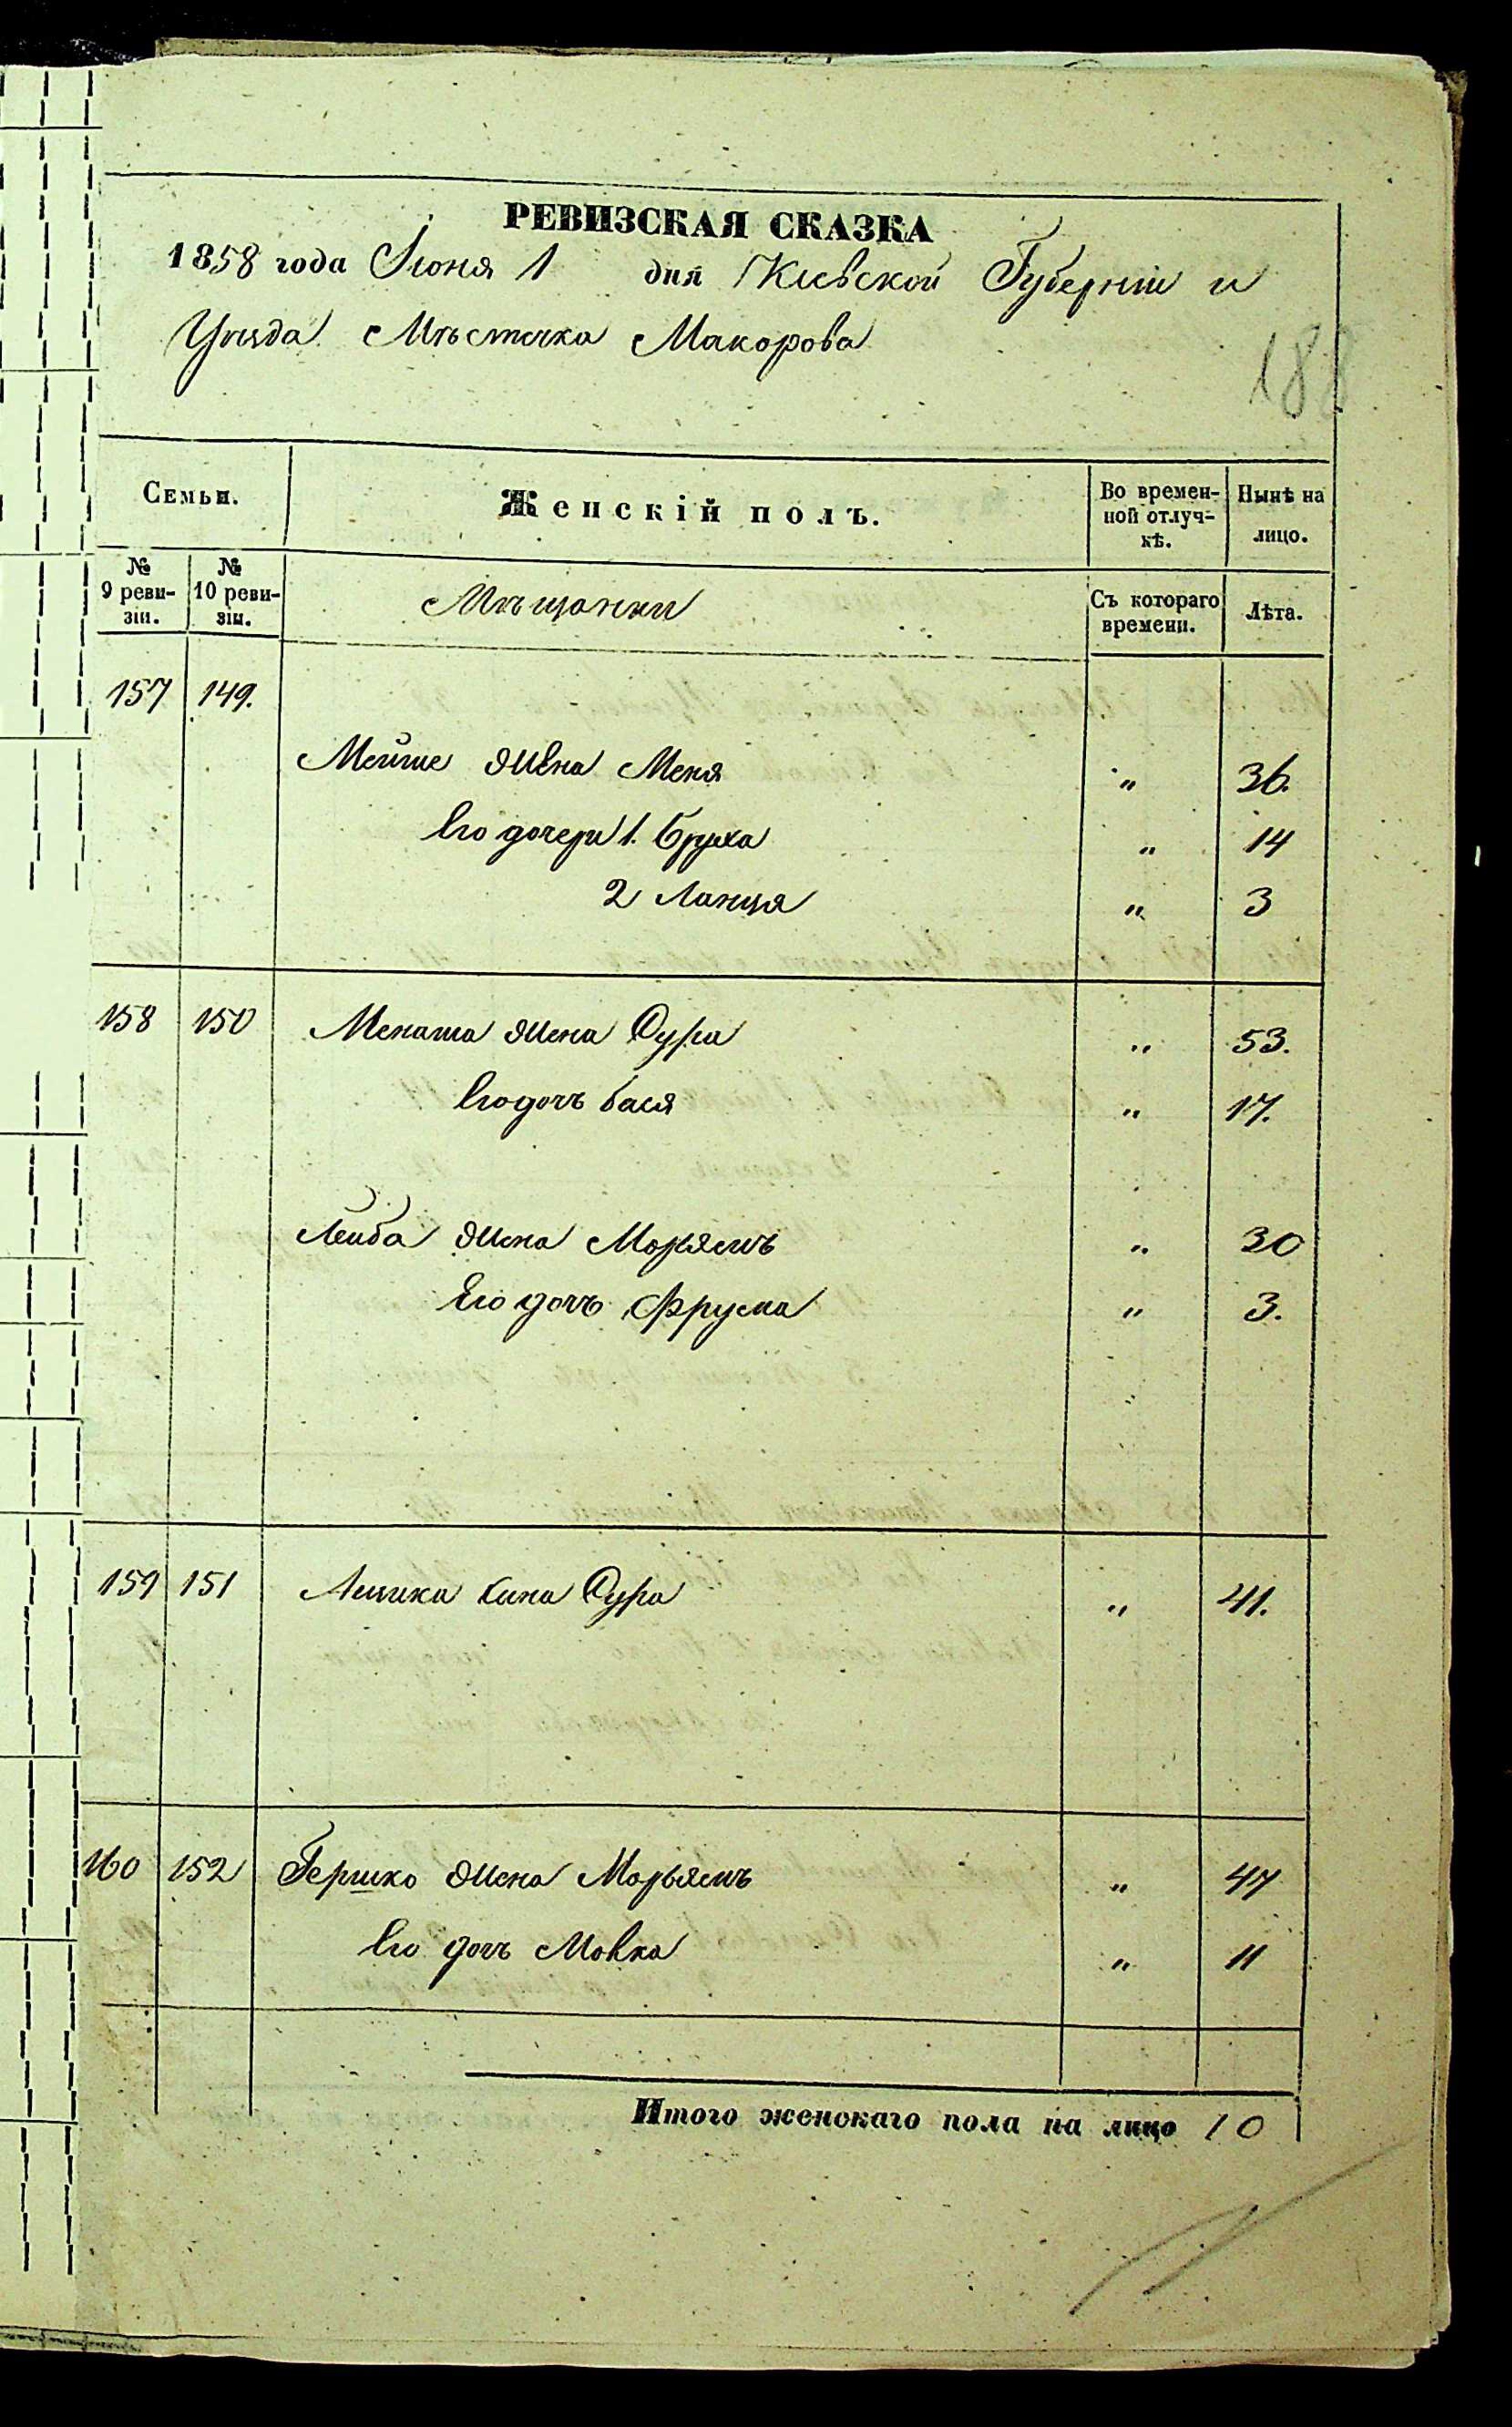 РЕВИЗСКАЯ СКАЗКА
1858 года Іюня 1 дня Кіевской Губерніи и
Уѣзда Мѣстечка Макорова
188
Семьи.
Женскій полъ.
Во времен-
ной отлуч-
кѣ.
Нынѣ на
лицо.
№
9 реви-
зіи.
№
10 реви-
зіи.
Мѣщанки
Съ котораго
времени.
Лѣта.
157 149.
Мейше жена Меня " 36.
Его дочери 1. Бруха " 14
2 Ланця " 3
158 150 Менаша жена Сура " 53.
Его дочь Бася " 17.
Лейба жена Марьямъ " 30
Его дочь Фрума " 3.
159 151 Сура " 41.
160 152 Гершко жена Марьямъ " 47
Его дочь Мовка " 11
Итого женскаго пола на лицо 10